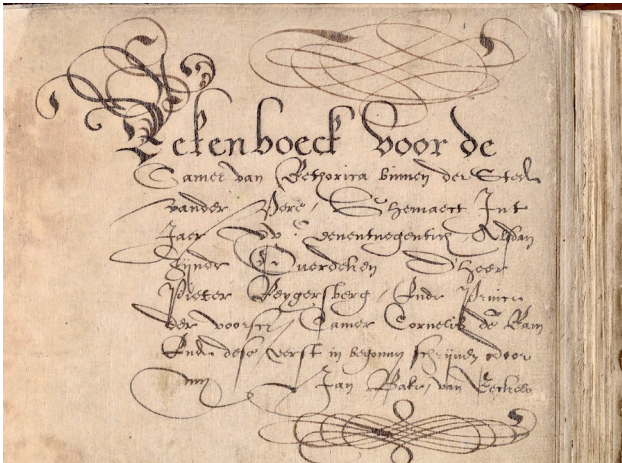 Rekenboeck voor de
Camer van Rethorica binnen der Stede
vander Vere / Ghemaect Int
Jaer xvc zevenentnegentich Alsdan
Zijnde Overdeken D'heer
Pieter Reygersberg / Ende Prince
der voorsz / Camer Cornelis de Ram
Ende dese eerst in begonnen schrijven door
my Jan van